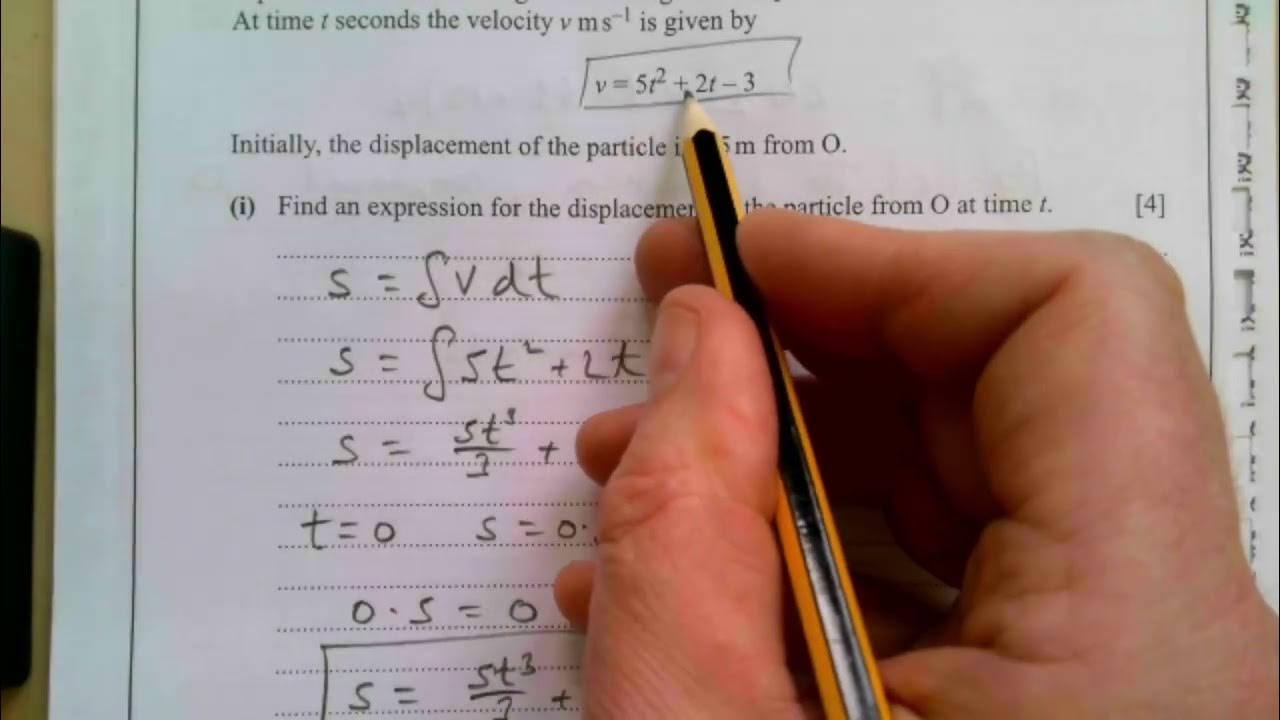 At time t seconds the velocity v m s⁻¹ is given by
v = 5t² + 2t – 3
Initially, the displacement of the particle 5 m from O.
(i) Find an expression for the displacemen the particle from O at time t. [4]
s = ∫ v dt
s = ∫ 5t² + 2t
s = 5t³/3 +
t = 0 s = 0.
0.5 = 0
s = 5t³/3 +